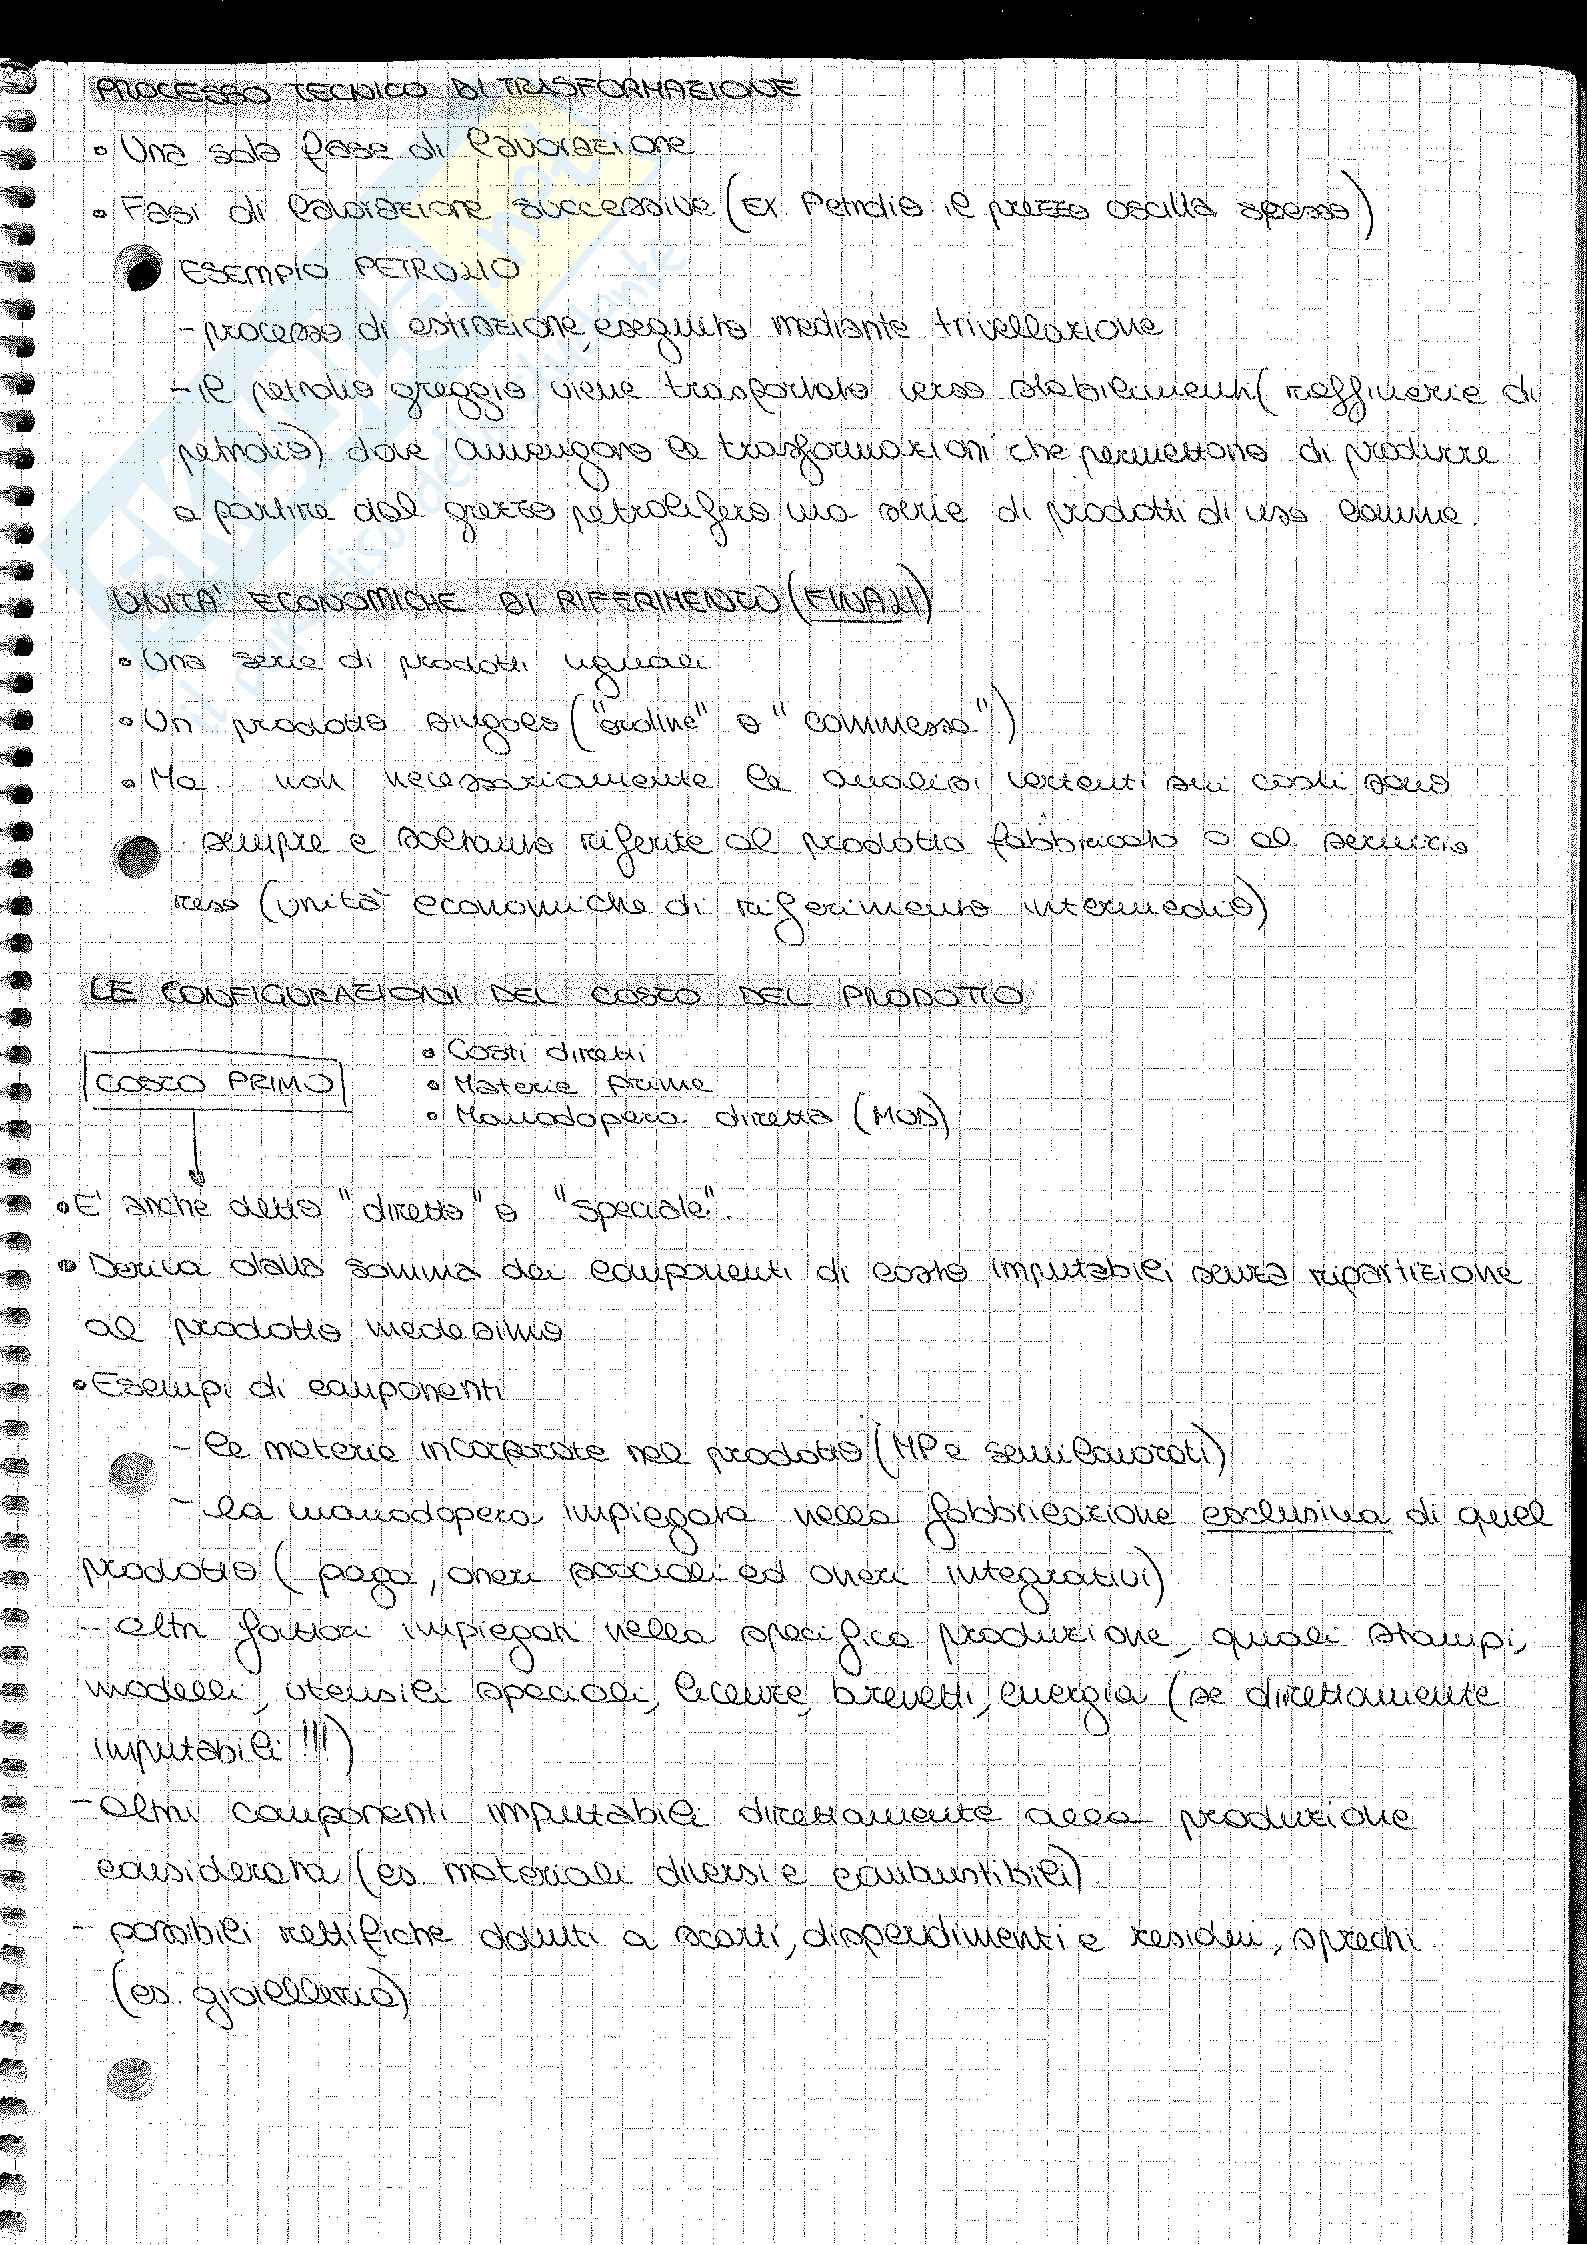 PROCESSO TECNICO DI TRASFORMAZIONE
• Una sola fase di lavorazione
• Fasi di lavorazione successive (Ex Petrolio il prezzo oscilla spesso)
ESEMPIO PETROLIO
- processo di estrazione, eseguito mediante trivellazione
- il petrolio greggio viene trasportato verso stabilimenti (raffinerie di
petrolio) dove avvengono le trasformazioni che permettono di produrre
a partire dal grezzo petrolifero una serie di prodotti di uso comune.
UNITA' ECONOMICHE DI RIFERIMENTO (FINALI)
• Una serie di prodotti uguali
• Un prodotto singolo ("ordine" o "commessa")
• Ma non necessariamente le analisi vertenti sui costi sono
sempre e soltanto riferite al prodotto fabbricato o al servizio
reso (unità economiche di riferimento intermedio)
LE CONFIGURAZIONI DEL COSTO DEL PRODOTTO
• Costi diretti
COSTO PRIMO • Materie prime
• Manodopera diretta (MOD)
• E' anche detto "diretto" o "speciale".
• Deriva dalla somma dei componenti di costo imputabili senza ripartizione
al prodotto medesimo
• Esempi di componenti
- le materie incorporate nel prodotto (MP e semilavorati)
- la manodopera impiegata nella fabbricazione esclusiva di quel
prodotto (paga, oneri sociali ed oneri integrativi)
- altri fattori impiegati nella specifica produzione, quali stampi,
modelli, utensili speciali, licenze, brevetti, energia (se direttamente
imputabili !!!)
- Altri componenti imputabili direttamente alla produzione
considerata (es. materiali diversi e combustibili)
- possibili rettifiche dovuti a scarti, disperdimenti e residui, sprechi.
(es. gioielleria)